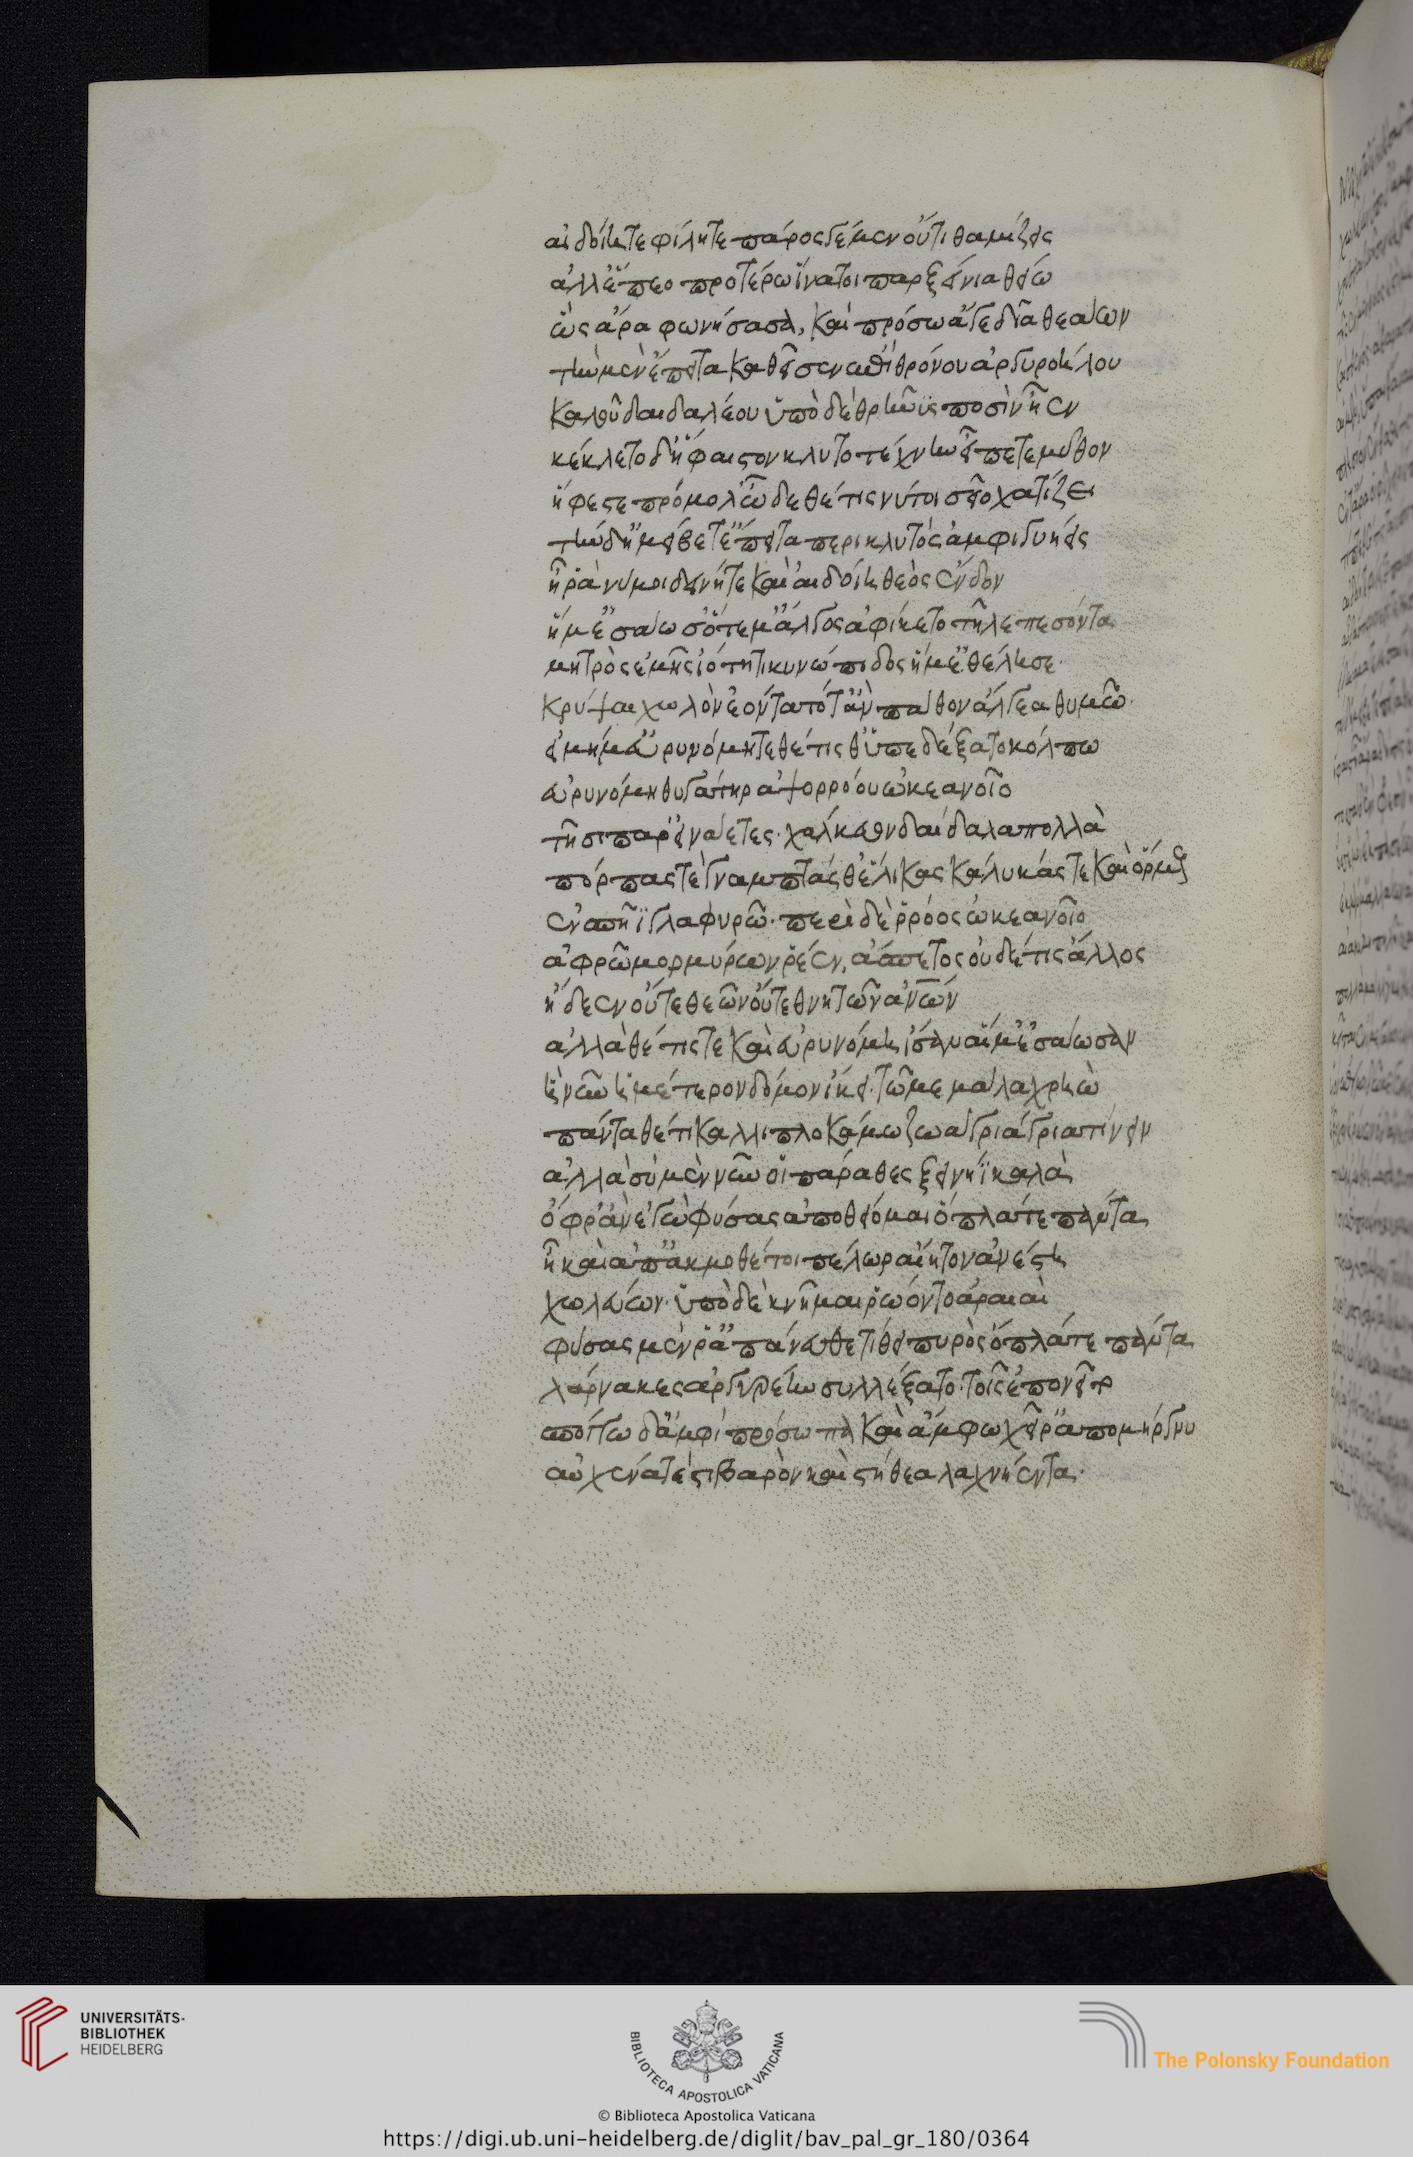 αἰδοίη τε φίλη τε πάρος γέ μεν οὔτι θαμίζεις
ἀλλ' ἕπεο προτέρω ἵνα τοι παρ ξείνια θείω
ὣς ἄρα φωνήσασα, καὶ πρόσω ἄγε δῖα θεάων
τὴν μὲν ἔπειτα καθεῖσεν ἐπὶ θρόνου ἀργυροήλου
καλοῦ δαιδαλέου ὑπὸ δὲ θρῆνυς ποσὶν ἦεν
κέκλετο δ' ἥφαιστον κλυτοτέχνην εἶπέ τε μῦθον
ἥφεστε πρόμολ' ὧδε θέτις νύ τοι σεῖο χατίζει
τὴν δ' ἠμείβετ' ἔπειτα περικλυτὸς ἀμφιγυήεις
ἦ ῥά νύ μοι δεινή τε καὶ αἰδοίη θεὸς ἔνδον
ἥ μ' ἐσάωσ' ὅτε μ' ἄλγος ἀφίκετο τῆλε πεσόντα
μητρὸς ἐμῆς ἰότητι κυνώπιδος ἥ μ' ἐθέλησε
κρύψαι χωλὸν ἐόντα τότ' ἂν πάθον ἄλγεα θυμῷ
εἰ μή μ' εὐρυνόμη τε θέτις θ' ὑπεδέξατο κόλπω
εὐρυνόμη θυγάτηρ ἀψορρόου ὠκεανοῖο
τῆσι παρ' εἰνάετες χάλκευον δαίδαλα πολλὰ
πόρπας τὲ γναμπτάς θ' ἕλικας κάλυκάς τε καὶ ὅρμους
ἐν σπῆϊ γλαφυρῶ· περὶ δὲ ῥόος ὠκεανοῖο
ἀφρῶ μορμύρων ῥέεν, ἄσπετος οὐδέ τις ἄλλος
ἤδεεν οὔτε θεῶν οὔτε θνητῶν ἀνῶν
ἀλλὰ θέτις τε καὶ εὐρυνόμη ἴσαν αἵ μ' ἐσάωσαν
ἣ νῦν ἡμέτερον δόμον ἵκει· τῶ με μάλα χρεὼ
πάντα θέτι καλλιπλοκάμω ζωάγρια τίνειν
ἀλλὰ σὺ μὲν νῦν οἱ παράθες ξεινήϊα καλὰ
ὄφρ' ἂν ἐγὼ φύσας ἀποθείομαι ὅπλά τε πάντα
ἦ καὶ ἀπ' ἀκμοθέτοιο πέλωρ αἴητον ἀνέστη
χωλεύων· ὑπὸ δὲ κνῆμαι ῥώοντο ἀραιαὶ
φύσας μέν ῥ' ἀπάνευθε τίθει πυρὸς ὅπλά τε πάντα
λάρνακ' ἐς ἀργυρέην συλλέξατο· τοῖς ἐπονεῖτο
σπόγγω δ' ἀμφὶ πρόσωπα καὶ ἄμφω χεῖρ' ἀπομόργνυ
αὐχένά τε στιβαρὸν καὶ στήθεα λαχνήεντα
UNIVERSITÄTS-
BIBLIOTHEK
HEIDELBERG
BIBLIOTECA APOSTOLICA VATICANA
The Polonsky Foundation
© Biblioteca Apostolica Vaticana
https://digi.ub.uni-heidelberg.de/diglit/bav_pal_gr_180/0364